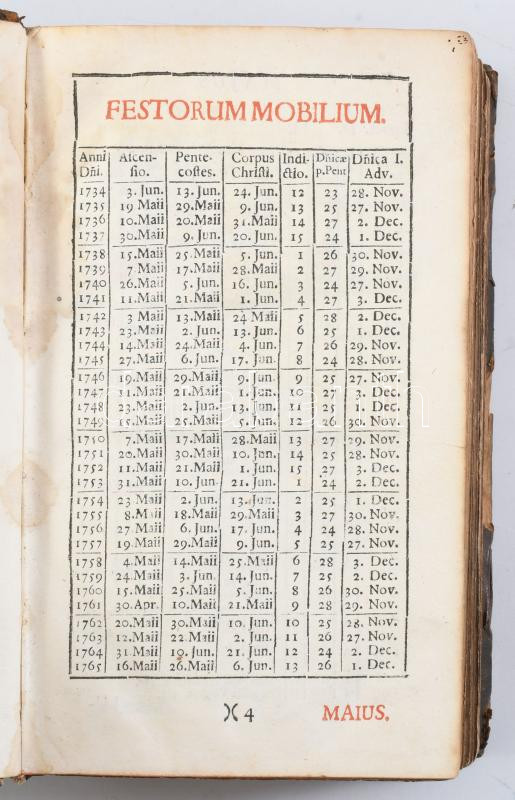 FESTORUM MOBILIUM.
Anni Ascen- Pente- Corpus Indi- Dñicæ Dñica I.
Dñi. sio. costes. Christi. ctio. p.Pent Adv.
1734 3. Jun. 13. Jun. 24. Jun. 12 23 28. Nov.
1735 19 Maii 29.Maii 9. Jun. 13 25 27. Nov.
1736 10.Maii 20.Maii 31.Maii 14 27 2. Dec.
1737 30.Maii 9. Jun. 20. Jun. 15 24 1. Dec.
1738 15.Maii 25.Maii 5. Jun. 1 26 30. Nov.
1739 7 Maii 17.Maii 28.Maii 2 27 29. Nov.
1740 26.Maii 5. Jun. 16. Jun. 3 24 27. Nov.
1741 11.Maii 21.Maii 1. Jun. 4 27 3. Dec.
1742 3 Maii 13.Maii 24 Maii 5 28 2. Dec.
1743 23.Maii 2. Jun. 13. Jun. 6 25 1. Dec.
1744 14.Maii 24.Maii 4. Jun. 7 26 29. Nov.
1745 27.Maii 6. Jun. 17. Jun. 8 24 28. Nov.
1746 19.Maii 29.Maii 9. Jun. 9 25 27. Nov.
1747 11.Maii 21.Maii 1. Jun. 10 27 3. Dec.
1748 23.Maii 2. Jun. 13. Jun. 11 25 1. Dec.
1749 15.Maii 25.Maii 5. Jun. 12 26 30. Nov.
1750 7.Maii 17.Maii 28.Maii 13 27 29. Nov.
1751 20.Maii 30.Maii 10. Jun. 14 25 28. Nov.
1752 11.Maii 21.Maii 1. Jun. 15 27 3. Dec.
1753 31.Maii 10. Jun. 21. Jun. 1 24 2. Dec.
1754 23 Maii 2. Jun. 13. Jun. 2 25 1. Dec.
1755 8.Maii 18.Maii 29.Maii 3 27 30. Nov.
1756 27 Maii 6. Jun. 17. Jun. 4 24 28. Nov.
1757 19.Maii 29.Maii 9. Jun. 5 25 27. Nov.
1758 4.Maii 14.Maii 25.Maii 6 28 3. Dec.
1759 24.Maii 3. Jun. 14. Jun. 7 25 2. Dec.
1760 15.Maii 25.Maii 5. Jun. 8 26 30. Nov.
1761 30.Apr. 10.Maii 21.Maii 9 28 29. Nov.
1762 20.Maii 30.Maii 10. Jun. 10 25 28. Nov.
1763 12.Maii 22.Maii 2. Jun. 11 26 27. Nov.
1764 31.Maii 10. Jun. 21. Jun. 12 24 2. Dec.
1765 16.Maii 26.Maii 6. Jun. 13 26 1. Dec.
)( 4 MAIUS.